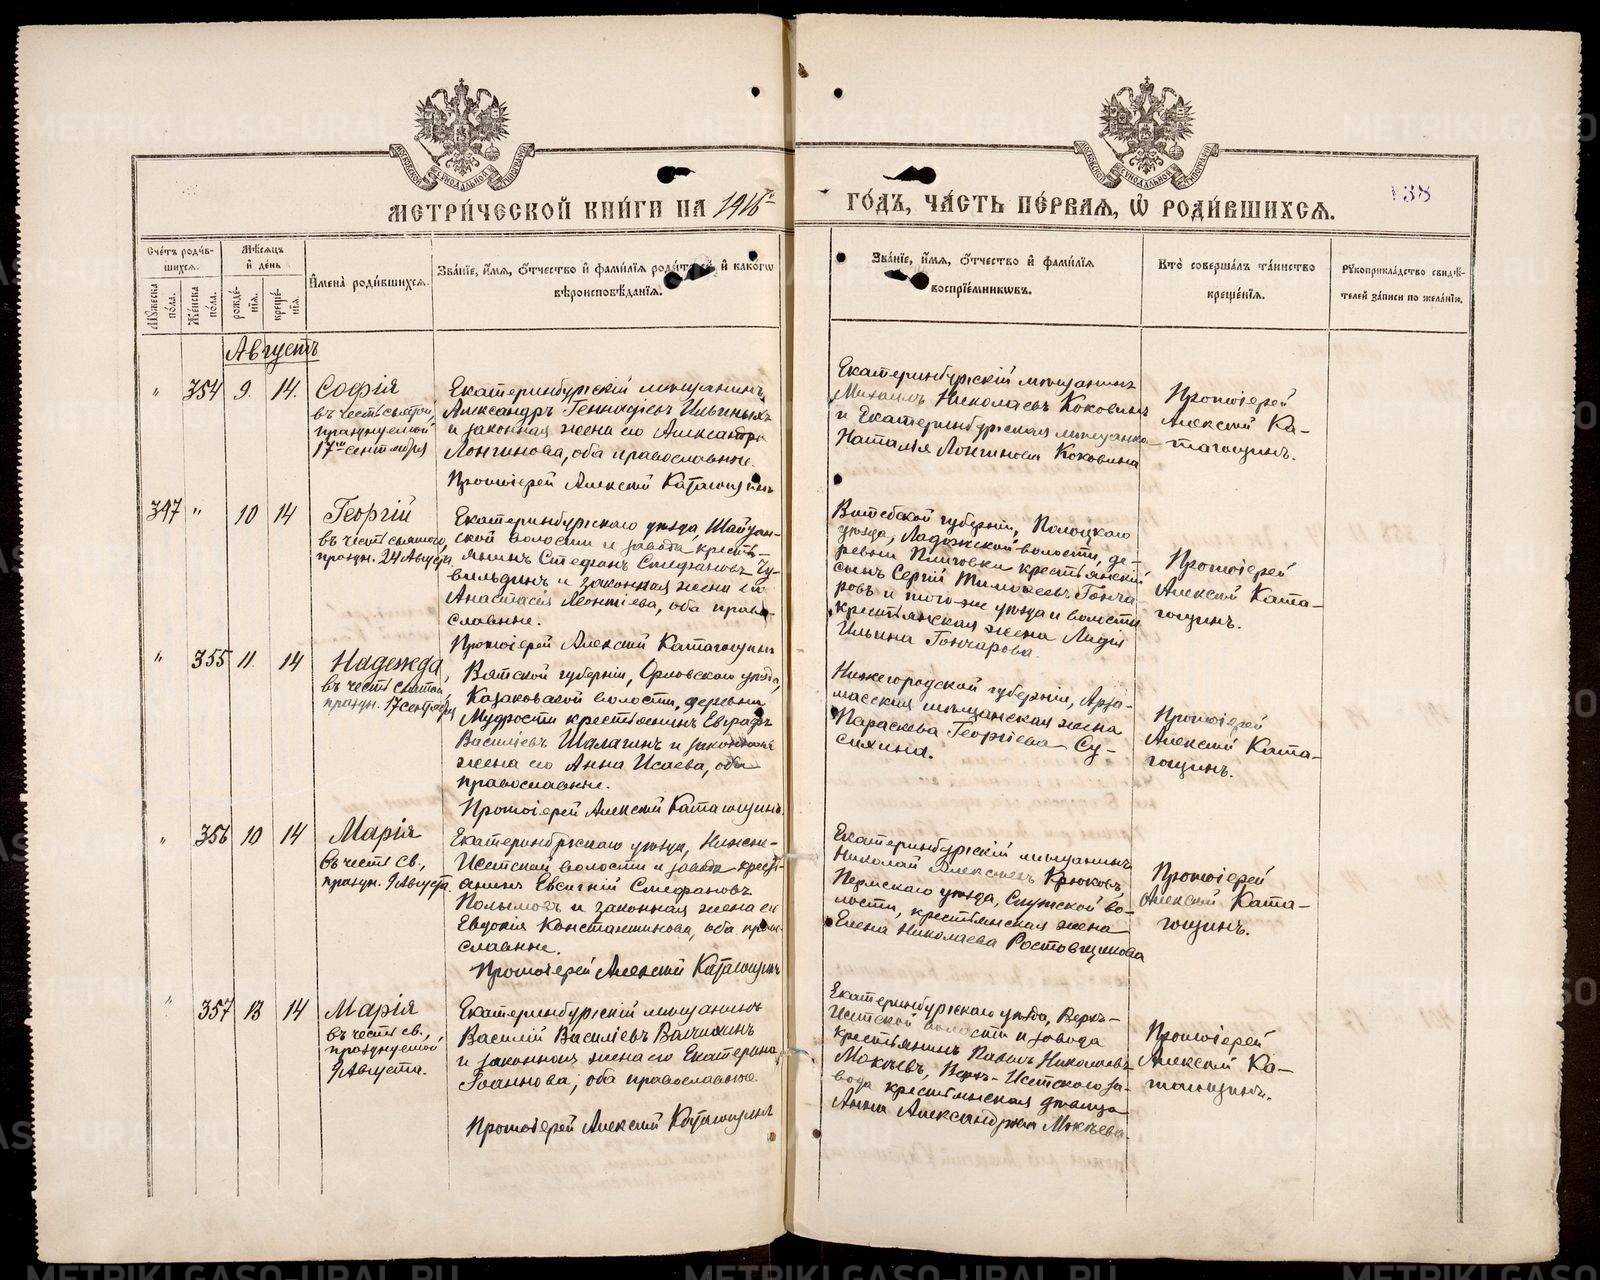 МЕТРИ́ЧЕСКОЙ КНИ́ГИ НА 1916й
ГО́ДЪ, ЧА́СТЬ ПЕ́РВАЯ, Ѡ҆ РОДИ́ВШИХСЯ.
138
Сче́тъ роди́в-
шихся.
Мѣ́сяцъ
и҆ де́нь
Мꙋ́жеска
по́ла.
Же́нска
по́ла.
рожде́-
нїя.
креще́-
нїя.
И҆мена̀ роди́вшихся.
Зва́нїе, и҆́мя, ѻ҆́тчество и҆ фами́лїя роди́телей, и҆ како́гѡ
вѣроисповѣ́данїя.
Зва́нїе, и҆́мя, ѻ҆́тчество и҆ фами́лїя
воспрїе́мникѡвъ.
Кто̀ соверша́лъ та́инство
креще́нїя.
Рꙋкоприкла́дство свидѣ́-
телей за́писи по жела́нїю.
Августъ
" 354 9. 14. Софія
въ честь святой,
празднуемой
17го сентября
Екатеринбургскій мѣщанинъ
Александръ Геннадіевъ Ильиныхъ
и законная жена его Александра
Лонгинова, оба православные.
Протоіерей Алексій Катагощинъ
Екатеринбургскій мѣщанинъ
Михаилъ Николаевъ Коковинъ
и Екатеринбургская мѣщанка
Наталія Лонгинова Коковина
Протоіерей
Алексій Ка-
тагощинъ.
347 " 10 14 Георгій
въ честь святого,
праздн. 24 Августа
Екатеринбургскаго уѣзда, Шайтан-
ской волости и завода крестья-
янинъ Стефанъ Стефановъ Чу-
вильдинъ и законная жена его
Анастасія Леонтіева, оба право-
славные.
Протоіерей Алексій Катагощинъ
Витебской губерніи, Полоцкаго
уѣзда, Ладожской волости, де-
ревни крестьянскій
сынъ Сергій Тимоѳеевъ Гонча
ровъ и того-же уѣзда и волости
крестьянская жена Лидія
Ильина Гончарова.
Протоіерей
Алексій Ката-
гощинъ.
" 355 11. 14 Надежда,
въ честь святой,
праздн. 17 сентября
Вятской губерніи, Орловскаго уѣзда,
Казаковской волости, деревни
Мудрости крестьянинъ Евграфъ
Василіевъ Шалагинъ и законная
жена его Анна Исаева, оба
православные.
Протоіерей Алексій Катагощинъ.
Нижегородской губерніи, Арза-
масская мѣщанская жена
Параскева Георгіева Су-
сихина.
Протоіерей
Алексій Ката-
гощинъ.
" 356 10 14 Марія
въ честь св.,
праздн. 9 Августа.
Екатеринбургскаго уѣзда, Нижне-
Исетской волости и завода кресть-
янинъ Евсигній Стефановъ
Полымовъ и законная жена его
Евдокія Константинова, оба право-
славные.
Протоіерей Алексій Катагощинъ
Екатеринбургскій мѣщанинъ
Николай Алексѣевъ Крюковъ,
Пермскаго уѣзда, во-
лости, крестьянская жена
Елена Николаева Ростовщикова
Протоіерей
Алексій Ката-
гощинъ.
" 357 13 14 Марія
въ честь св.,
празднуемой
9 Августа.
Екатеринбургскій мѣщанинъ
Василій Василіевъ
и законная жена его Екатерина
Іоаннова, оба православные.
Протоіерей Алексій Катагощинъ
Екатеринбургскаго уѣзда, Верх-
Исетской волости и завода
крестьянинъ Павелъ Николаевъ
Мокѣевъ, Верх-Исетскаго за-
вода крестьянская дѣвица
Анна Александрова Мокѣева.
Протоіерей
Алексій Ка-
тагощинъ.
METRIKI.GASO-URAL.RU